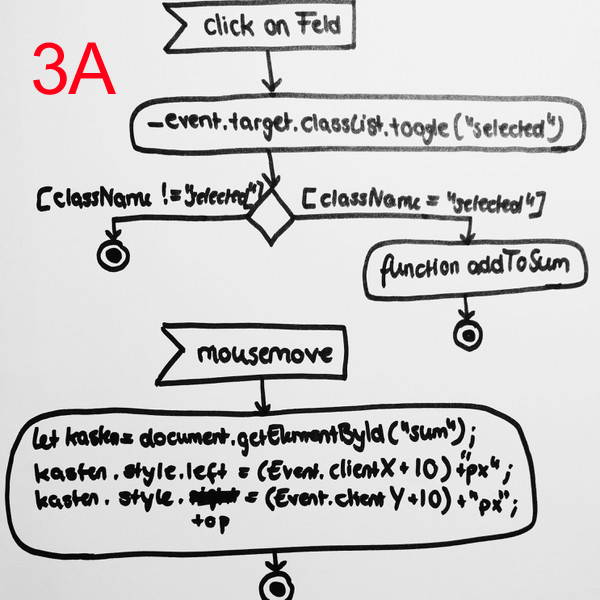 click on Feld
3A
-event.target.classList.toogle("selected")
[className != "selected"]
[className = "selected"]
function addToSum
mousemove
let kasten= document.getElementById("sum");
kasten.style.left = (Event.clientX+10)+"px";
kasten.style. = (Event.clientY+10)+"px";
top